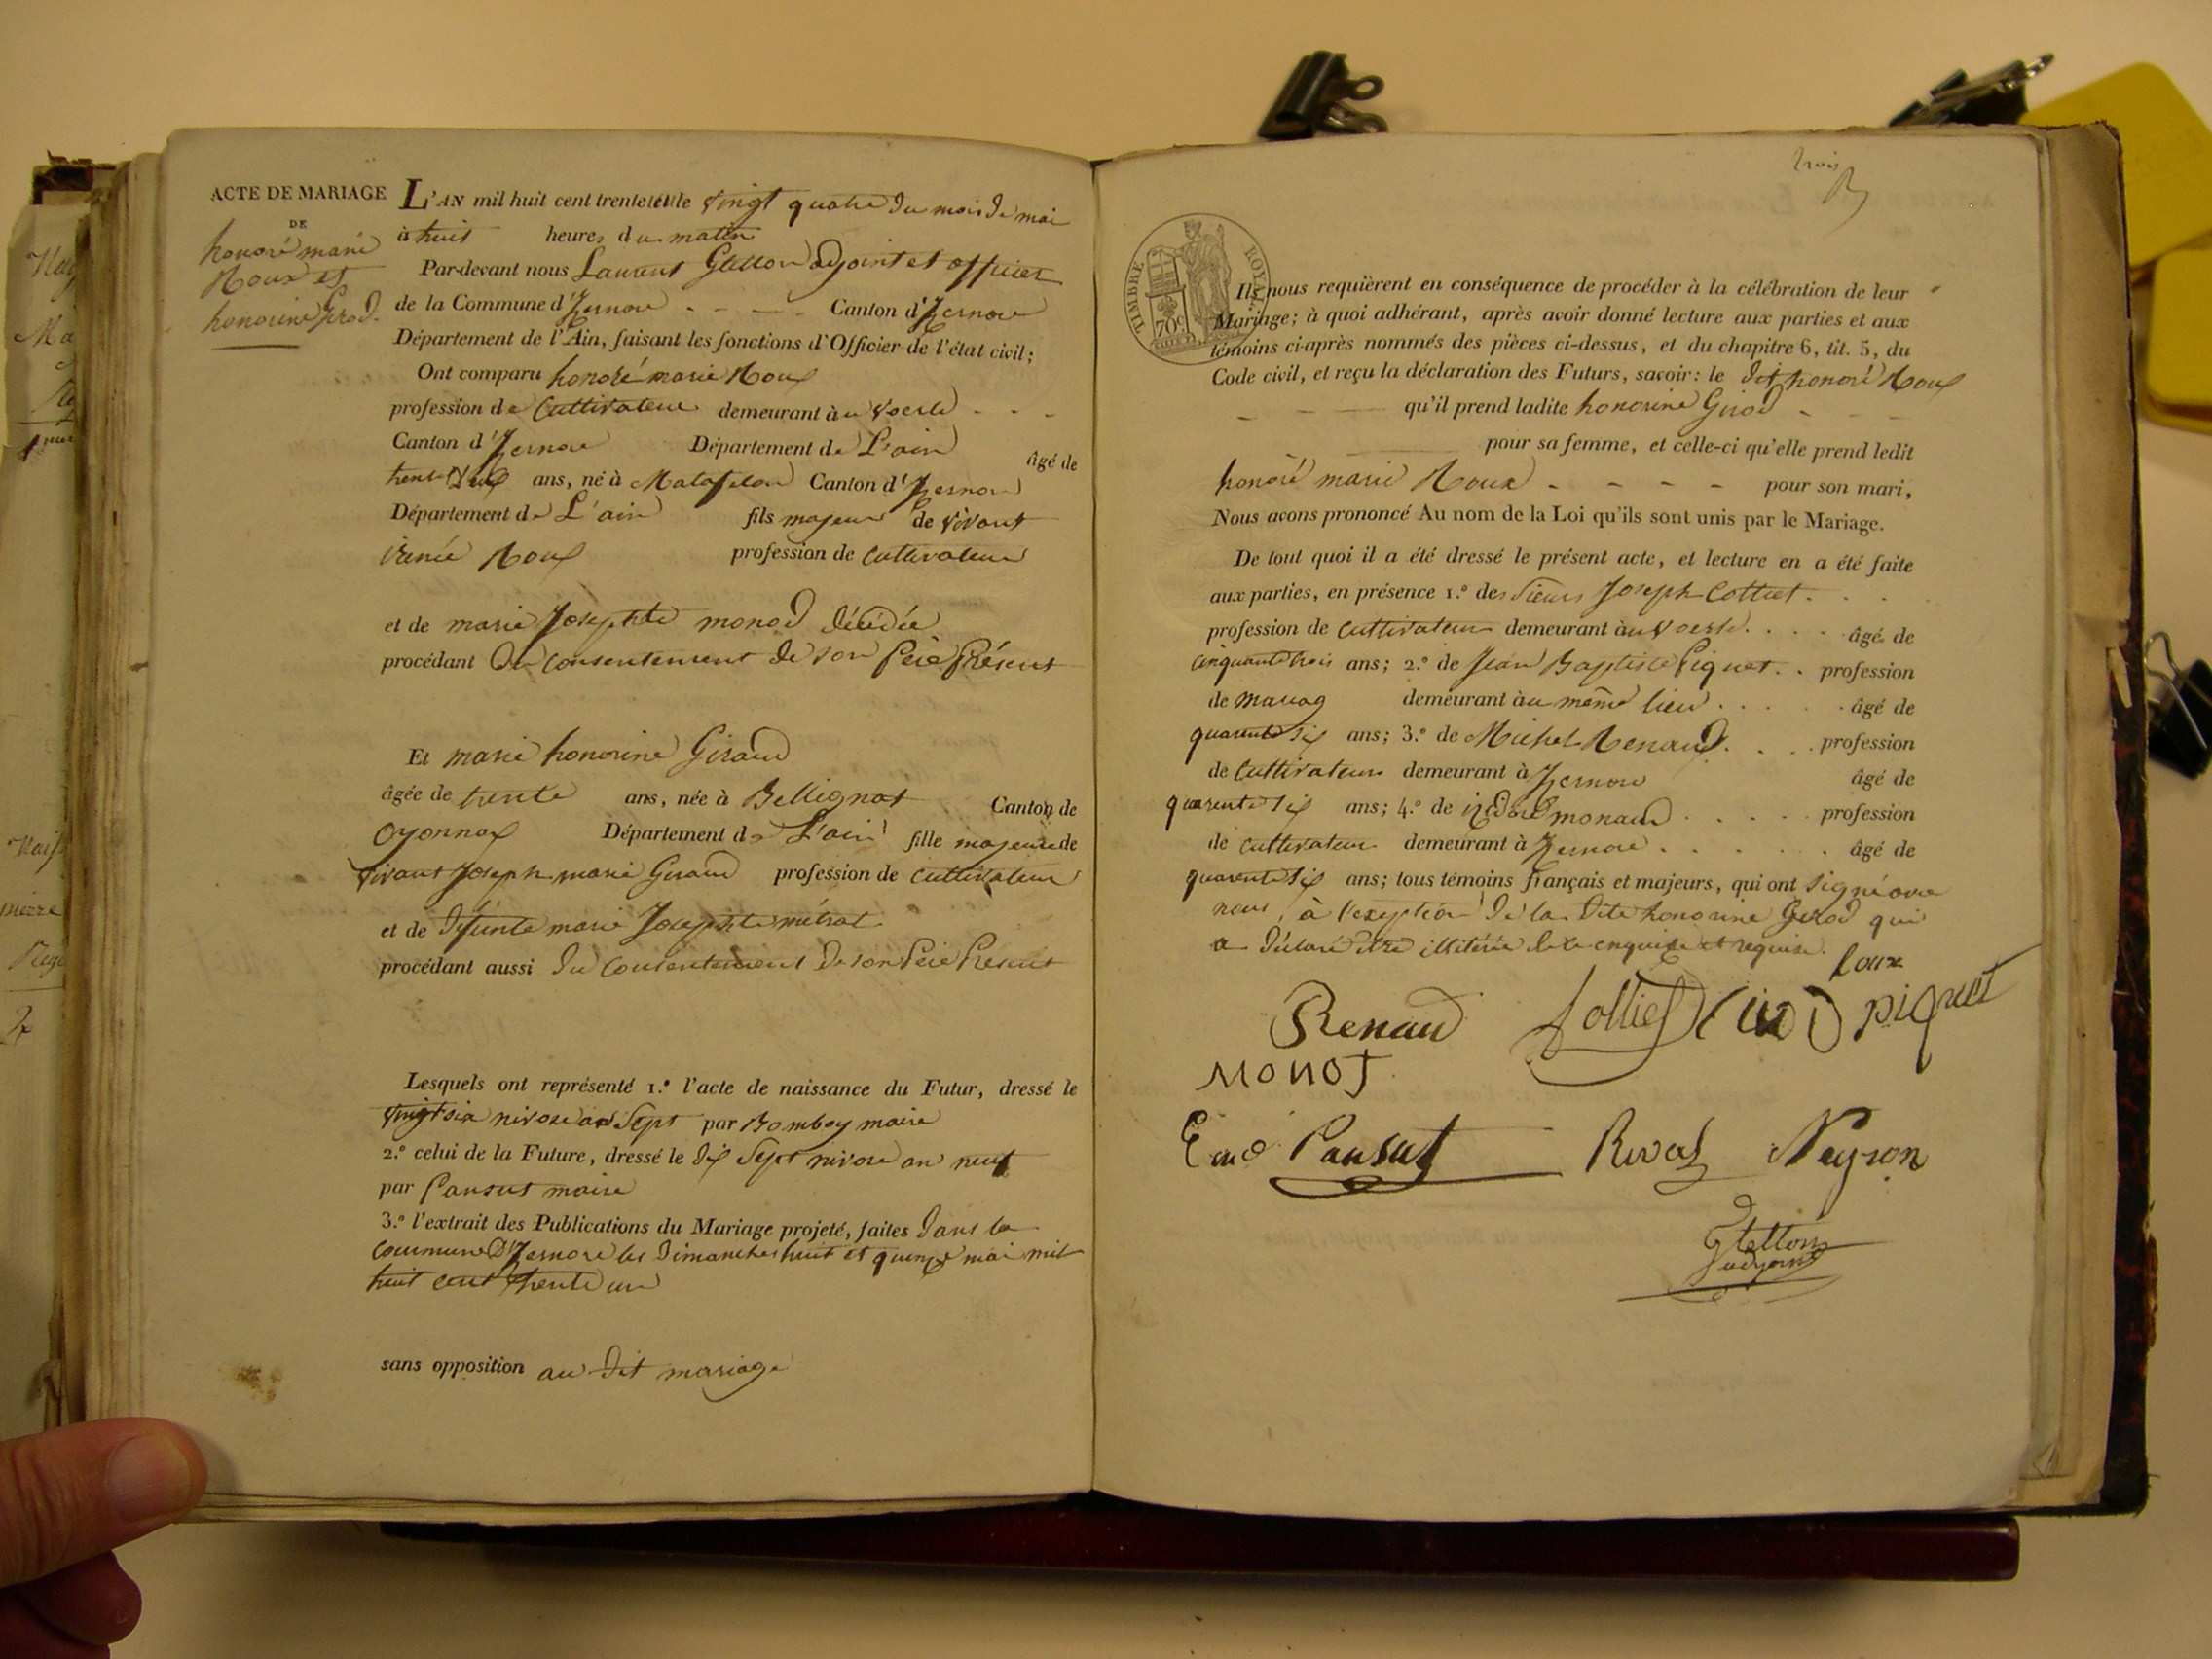 ACTE DE MARIAGE
DE
honoré marie
Roux et
honorine Girod.
L'AN mil huit cent trente et un le vingt quatre du mois de mai
à huit heures du matin
Par-devant nous Laurent Gletton adjoint et officier
de la Commune d'Izernore - - - Canton d'Izernore
Département de l'Ain, faisant les fonctions d'Officier de l'état civil;
Ont comparu honoré marie Roux
profession de Cultivateur demeurant à au Voerle - - -
Canton d'Izernore Département de L'ain âgé de
trente deux ans, né à Matafelon Canton d'Izernore
Département de L'ain fils majeur de vivant
irénée Roux profession de Cultivateur
et de marie Josephte monod décédée
procédant du Consentement de son Père Présent
Et marie honorine Giraud
âgée de trente ans, née à Bellignat Canton de
Oyonnax Département de L'ain fille majeure de
vivant Joseph marie Giraud profession de cultivateur
et de défunte marie Josephte métral
procédant aussi du Consentement de son Père Présent
Lesquels ont représenté 1.º l'acte de naissance du Futur, dressé le
vingt six nivose an Sept par Bomboy maire
2.º celui de la Future, dressé le dix Sept nivose an neuf
par Pansut maire
3.º l'extrait des Publications du Mariage projeté, faites dans la
commune d'Izernore les dimanches huit et quinze mai mil
huit cent trente un
sans opposition au dit mariage
trois
TIMBRE ROYAL
70c
Ils nous requièrent en conséquence de procéder à la célébration de leur
Mariage; à quoi adhérant, après avoir donné lecture aux parties et aux
témoins ci-après nommés des pièces ci-dessus, et du chapitre 6, tit. 5, du
Code civil, et reçu la déclaration des Futurs, savoir: le dit honoré Roux
qu'il prend ladite honorine Girod - - -
pour sa femme, et celle-ci qu'elle prend ledit
honoré marie Roux - - - - pour son mari,
Nous avons prononcé Au nom de la Loi qu'ils sont unis par le Mariage.
De tout quoi il a été dressé le présent acte, et lecture en a été faite
aux parties, en présence 1.º des Sieurs Joseph Cottiet . . .
profession de cultivateur demeurant à au Voerle . . . . âgé de
cinquante trois ans; 2.º de Jean Baptiste Piquet . . profession
de demeurant à au même lieu . . . . âgé de
quarente six ans; 3.º de Michel Renaud . . . profession
de Cultivateur demeurant à Izernore âgé de
quarente six ans; 4.º de izidore monaud . . . . . profession
de cultivateur demeurant à Izernore . . . . . âgé de
quarente six ans; tous témoins français et majeurs, qui ont signé avec
nous, à l'exeption de la dite honorine Girod qui
a déclaré être illitérée de ce enquise et requise.
Roux
Renaud Piquet
Monot
Pansut Rival Neyron
Gletton
adjoint